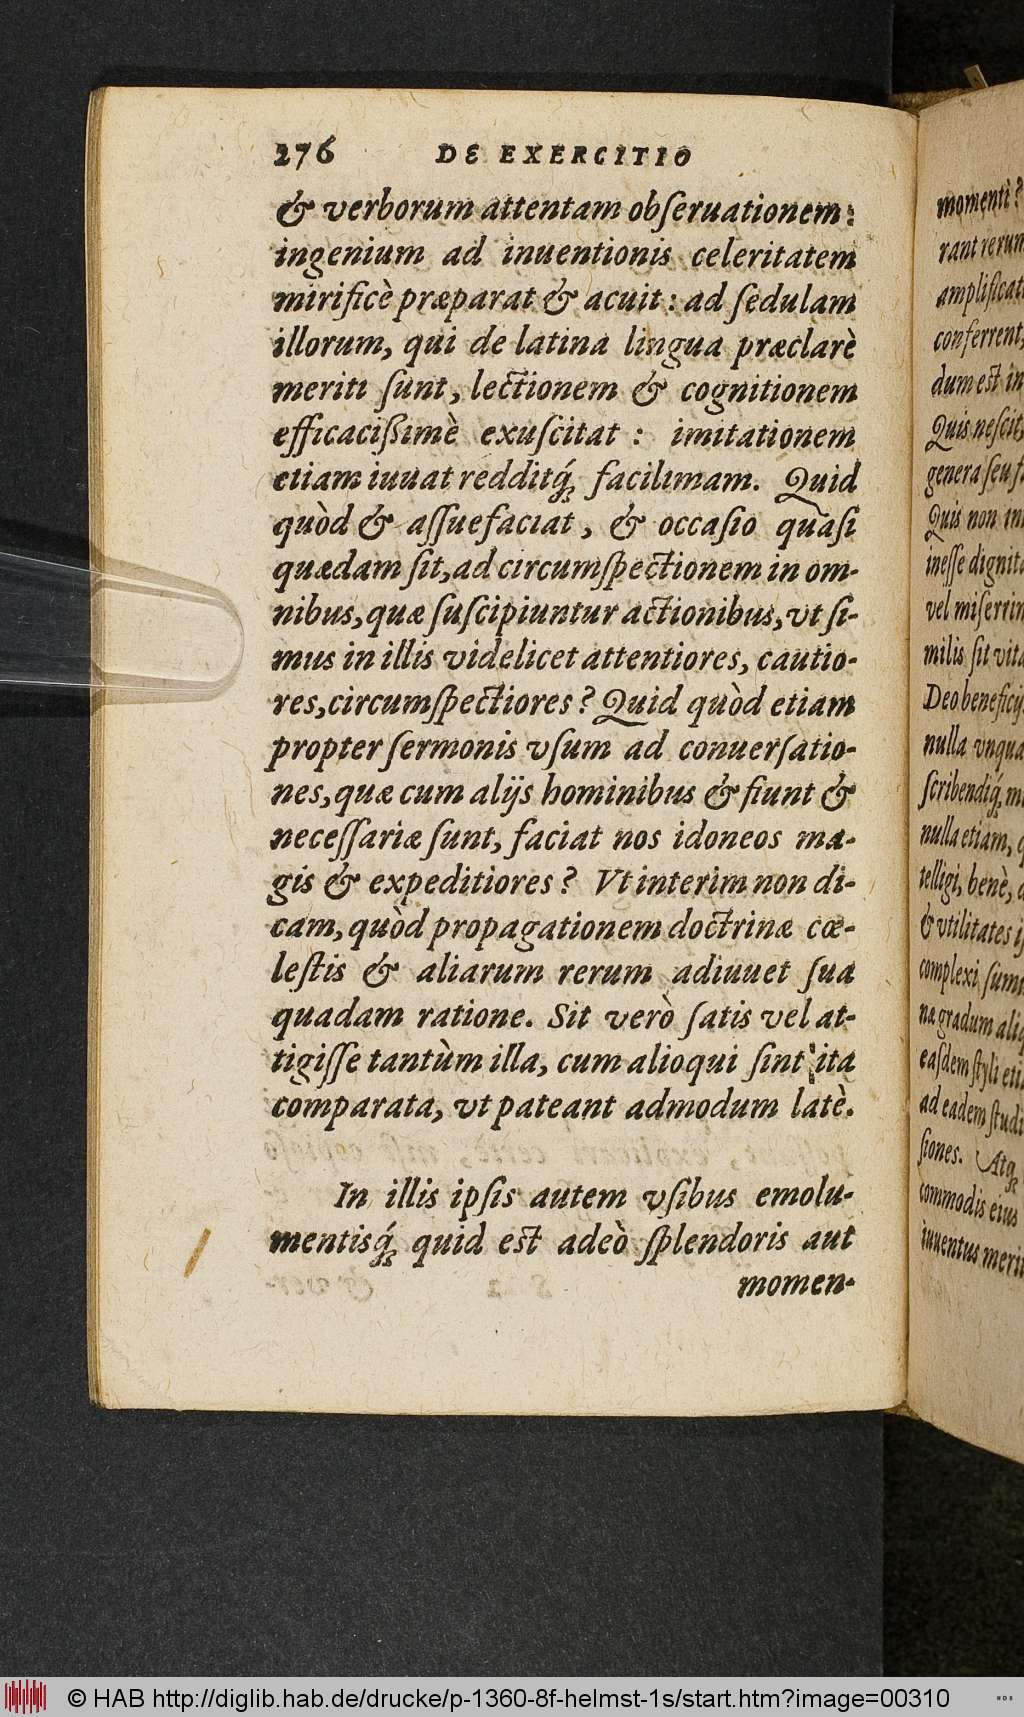 276 DE EXERCITIO
& verborum attentam obſeruationem:
ingenium ad inuentionis celeritatem
mirificè præparat & acuit: ad ſedulam
illorum, qui de latina lingua præclarè
meriti ſunt, lectionem & cognitionem
efficacißimè exuſcitat: imitationem
etiam iuuat redditq́; facilimam. Quid
quòd & aſſuefaciat, & occaſio quaſi
quædam ſit, ad circumſpectionem in om-
nibus, quæ ſuſcipiuntur actionibus, vt ſi-
mus in illis videlicet attentiores, cautio-
res, circumſpectiores? Quid quòd etiam
propter ſermonis vſum ad conuerſatio-
nes, quæ cum alijs hominibus & fiunt &
neceſſariæ ſunt, faciat nos idoneos ma-
gis & expeditiores? Vt interim non di-
cam, quòd propagationem doctrinæ cœ-
leſtis & aliarum rerum adiuuet ſua
quadam ratione. Sit verò ſatis vel at-
tigiſſe tantùm illa, cum alioqui ſint ita
comparata, vt pateant admodum latè.
In illis ipſis autem vſibus emolu-
mentisq́; quid eſt adeò ſplendoris aut
momen-
momenti?
rant rerum
amplificat
conferrent,
dum eſt in
Quis neſcit,
genera ſeu
Quis non
ineſſe dignit
vel miſerrim
milis ſit vita
Deo benefici
nulla vnqua
ſcribendiq́;
nulla etiam,
telligi, benè,
& vtilitates
complexi ſum
næ gradum
eaſdem ſtyli eti
ad eadem ſtudi
ſiones. Atq;
commodis eius
iuuentus meri
© HAB http://diglib.hab.de/drucke/p-1360-8f-helmst-1s/start.htm?image=00310